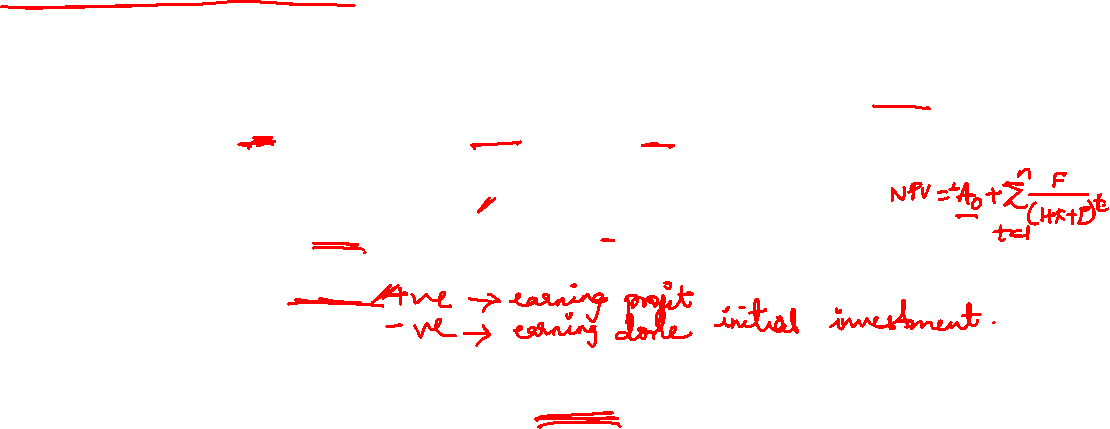 NPV = ±A₀ + Σ F / (1+k+p)^t
n
t=1
+ve → earning profit
-ve → earning done initial investment.